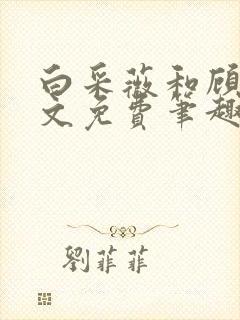 白采薇和顾
文免费笔趣
劉菲菲